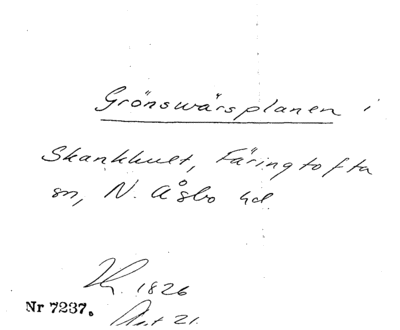 Grönswärsplanen i
Skankhult, Färingtofta
sn, N. Åsbo hd
1826
Nr 7237.
21.